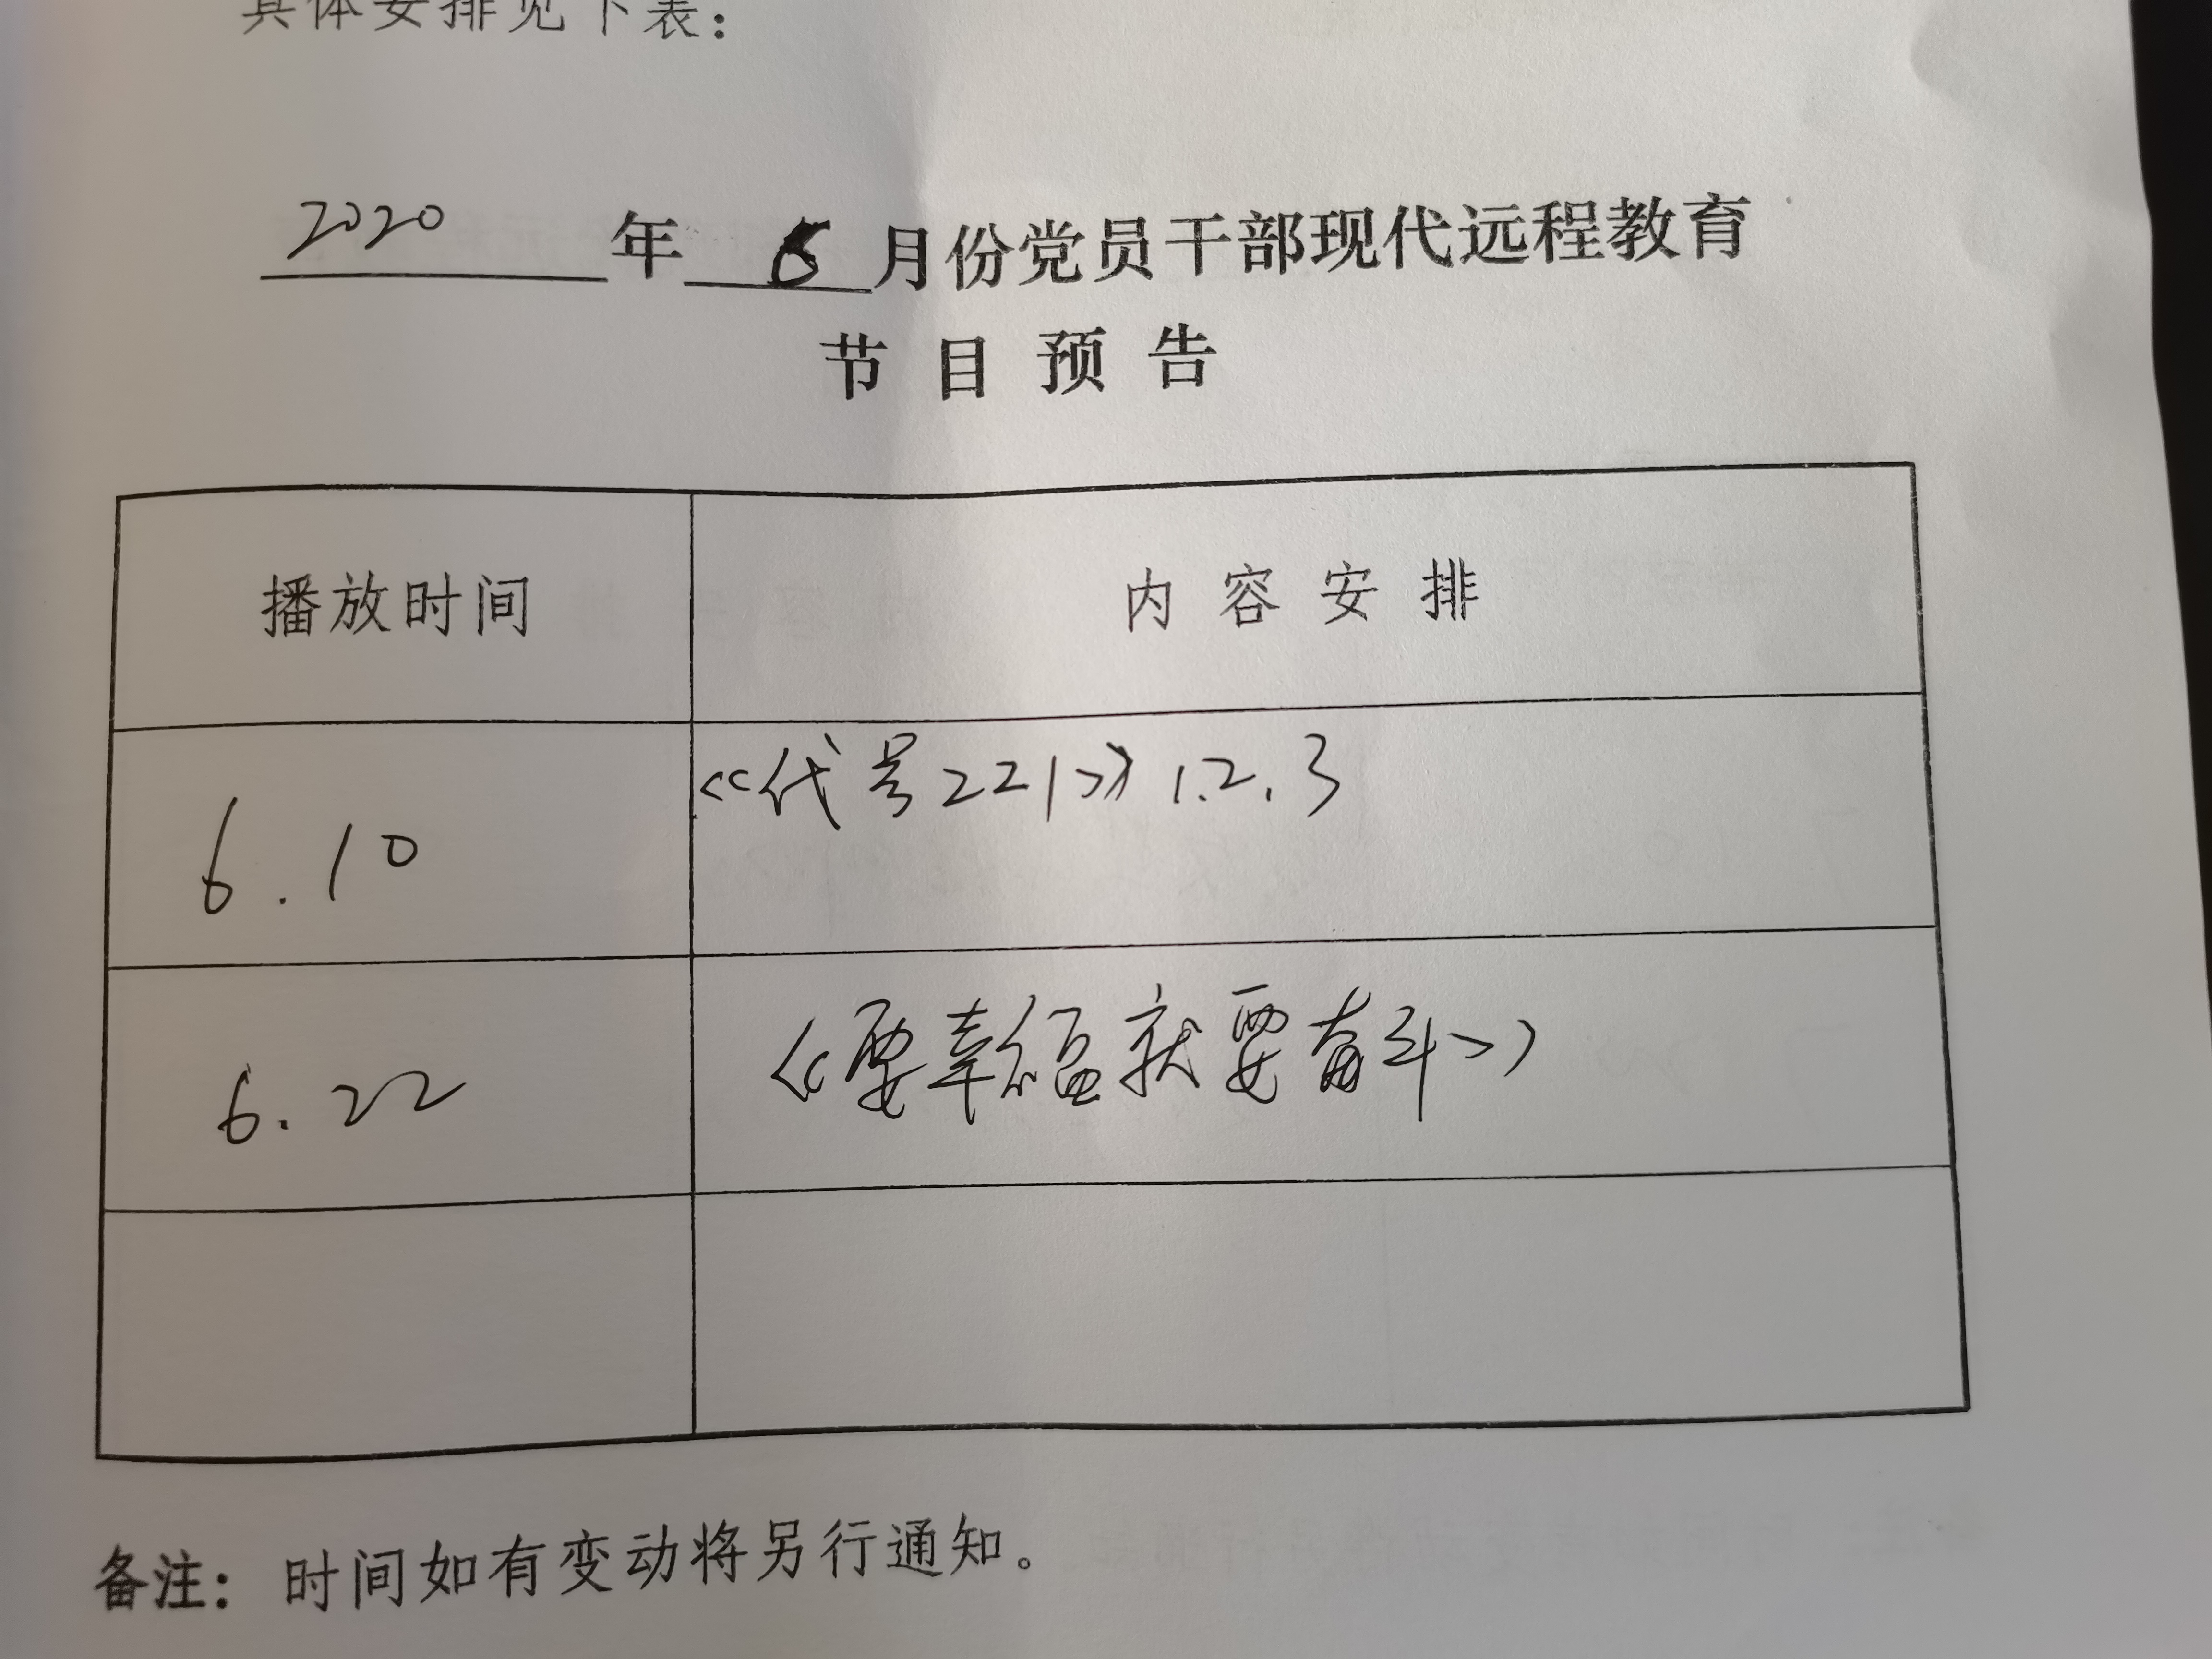 具体安排见下表：
2020年 6 月份党员干部现代远程教育
节目预告
播放时间 内容安排
6.10 《代号221》1.2.3
6.22 《要幸福就要奋斗》
备注：时间如有变动将另行通知。